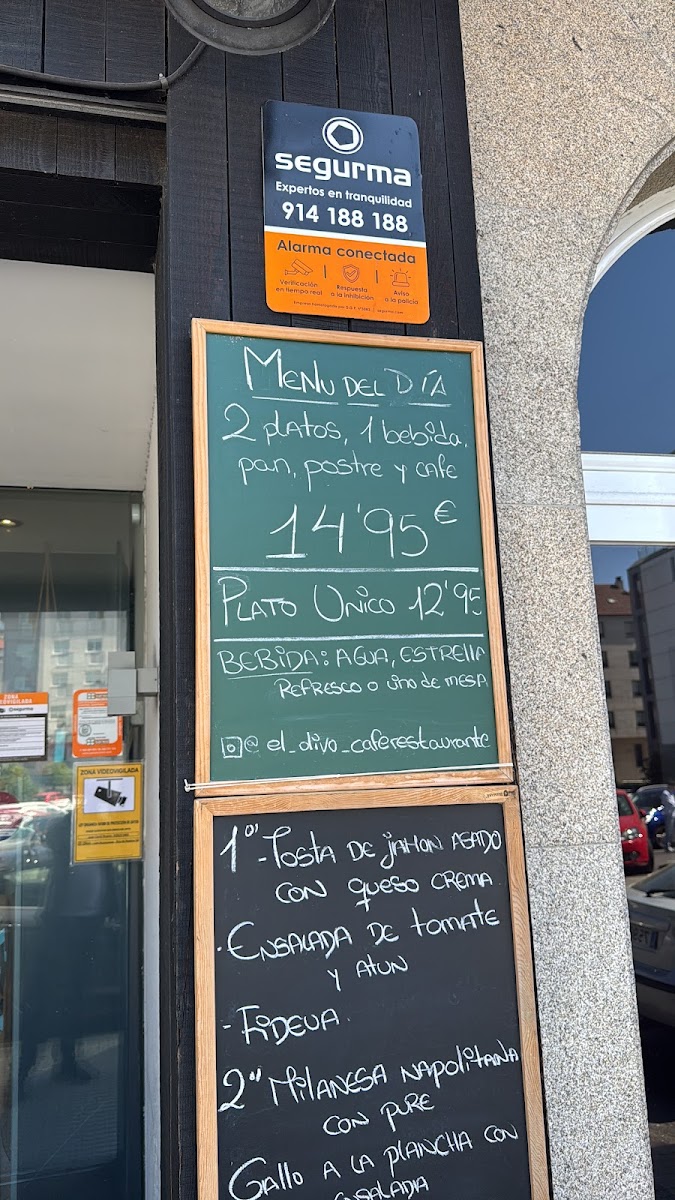 segurma
Expertos en tranquilidad
914 188 188
Alarma conectada
Verificación
en tiempo real
Respuesta
a la inhibición
Aviso
a la policía
MENU DEL DÍA
2 platos, 1 bebida,
pan, postre y cafe
14'95€
PLATO UNICO 12'95
BEBIDA: AGUA, ESTRELLA
REFRESCO O VINO DE MESA
@ el_divo_caferestaurante
1º-TOSTA DE JAMON ASADO
CON QUESO CREMA
·ENSALADA DE tomate
Y ATUN
-FIDEUA
2º MILANESA NAPOLITANA
CON PURE
GALLO A LA PLANCHA CON
ENSALADA
ZONA
segurma
ZONA VIDEOVIGILADA